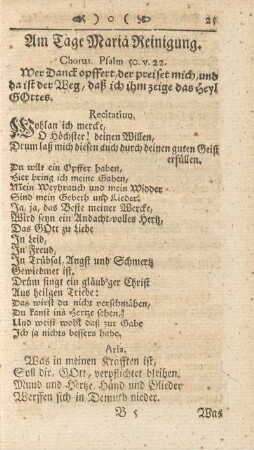 o 25
Am Tage Mariä Reinigung.
Chorus. Psalm 50. v. 22.
Wer Danck opffert, der preiset mich, und
da ist der Weg, daß ich ihm zeige das Heyl
GOttes.
Recitativo.
Wohlan ich mercke,
O Höchster! deinen Willen,
Drum laß mich diesen auch durch deinen guten Geist
erfüllen.
Du wilt ein Opffer haben,
Hier bring ich meine Gaben,
Mein Weyrauch und mein Widder
Sind mein Gebeth und Lieder.
Ja, ja, das Beste meiner Wercke,
Wird seyn ein Andacht-volles Hertz,
Das GOtt zu Liebe
In Leid,
In Freud,
In Trübsal, Angst und Schmertz
Gewiedmet ist.
Drüm singt ein gläub'ger Christ
Aus heilgen Triebe:
Das wirst du nicht verschmähen,
Du kanst ins Hertze sehen,
Und weist wohl daß zur Gabe
Ich ja nichts bessers habe.
Aria.
Was in meinen Kräfften ist,
Soll dir, GOtt, verpflichtet bleiben.
Mund und Hertze, Händ und Glieder
Werffen sich in Demuth nieder.
B 5 Was